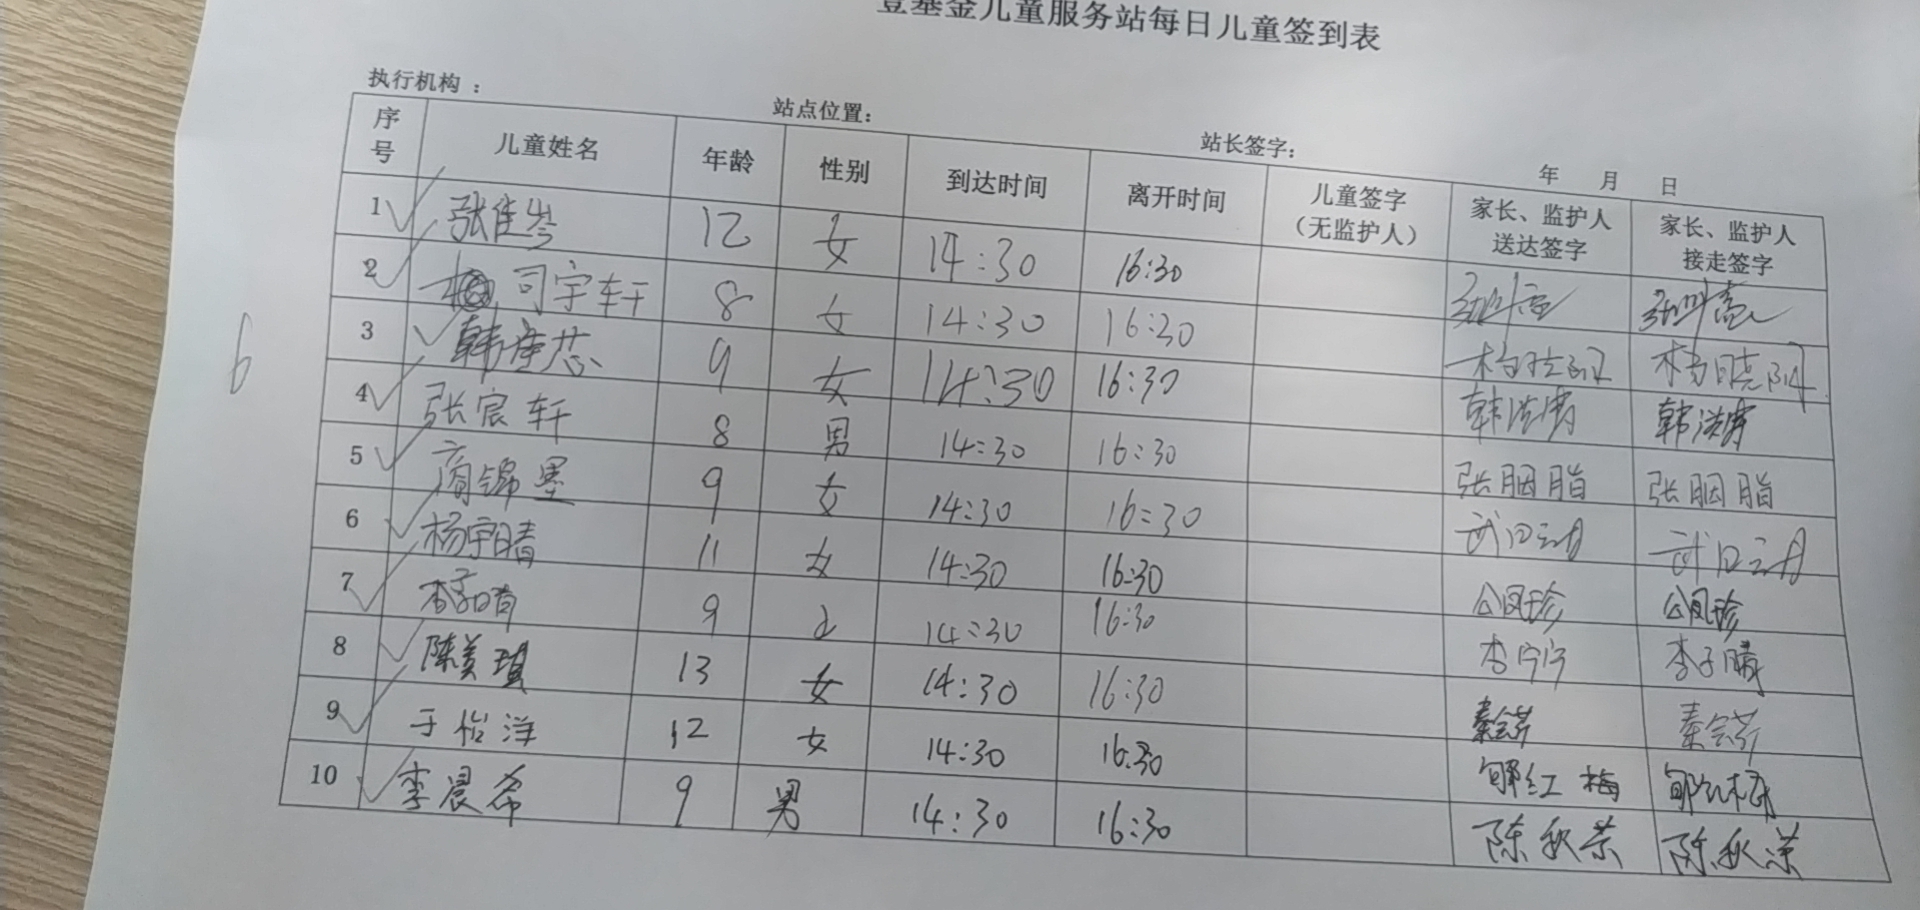 壹基金儿童服务站每日儿童签到表
执行机构 : 站点位置: 站长签字: 年 月 日
序号 儿童姓名 年龄 性别 到达时间 离开时间 儿童签字（无监护人） 家长、监护人送达签字 家长、监护人接走签字
1 张佳岑 12 女 14:30 16:30
2 司宇轩 8 女 14:30 16:30 杨晓
3 韩 芯 9 女 14:30 16:30 韩洪涛 韩洪涛
4 张宸轩 8 男 14:30 16:30 张胭脂 张胭脂
5 商锦墨 9 女 14:30 16:30
6 杨宇晴 11 女 14:30 16:30 公凤珍 公凤珍
7 李子晴 9 女 14:30 16:30 李宁宁 李子晴
8 陈美琪 13 女 14:30 16:30 秦会芹 秦会芹
9 于怡洋 12 女 14:30 16:30 郇红梅 郇红梅
10 李晨希 9 男 14:30 16:30 陈秋荣 陈秋荣
6